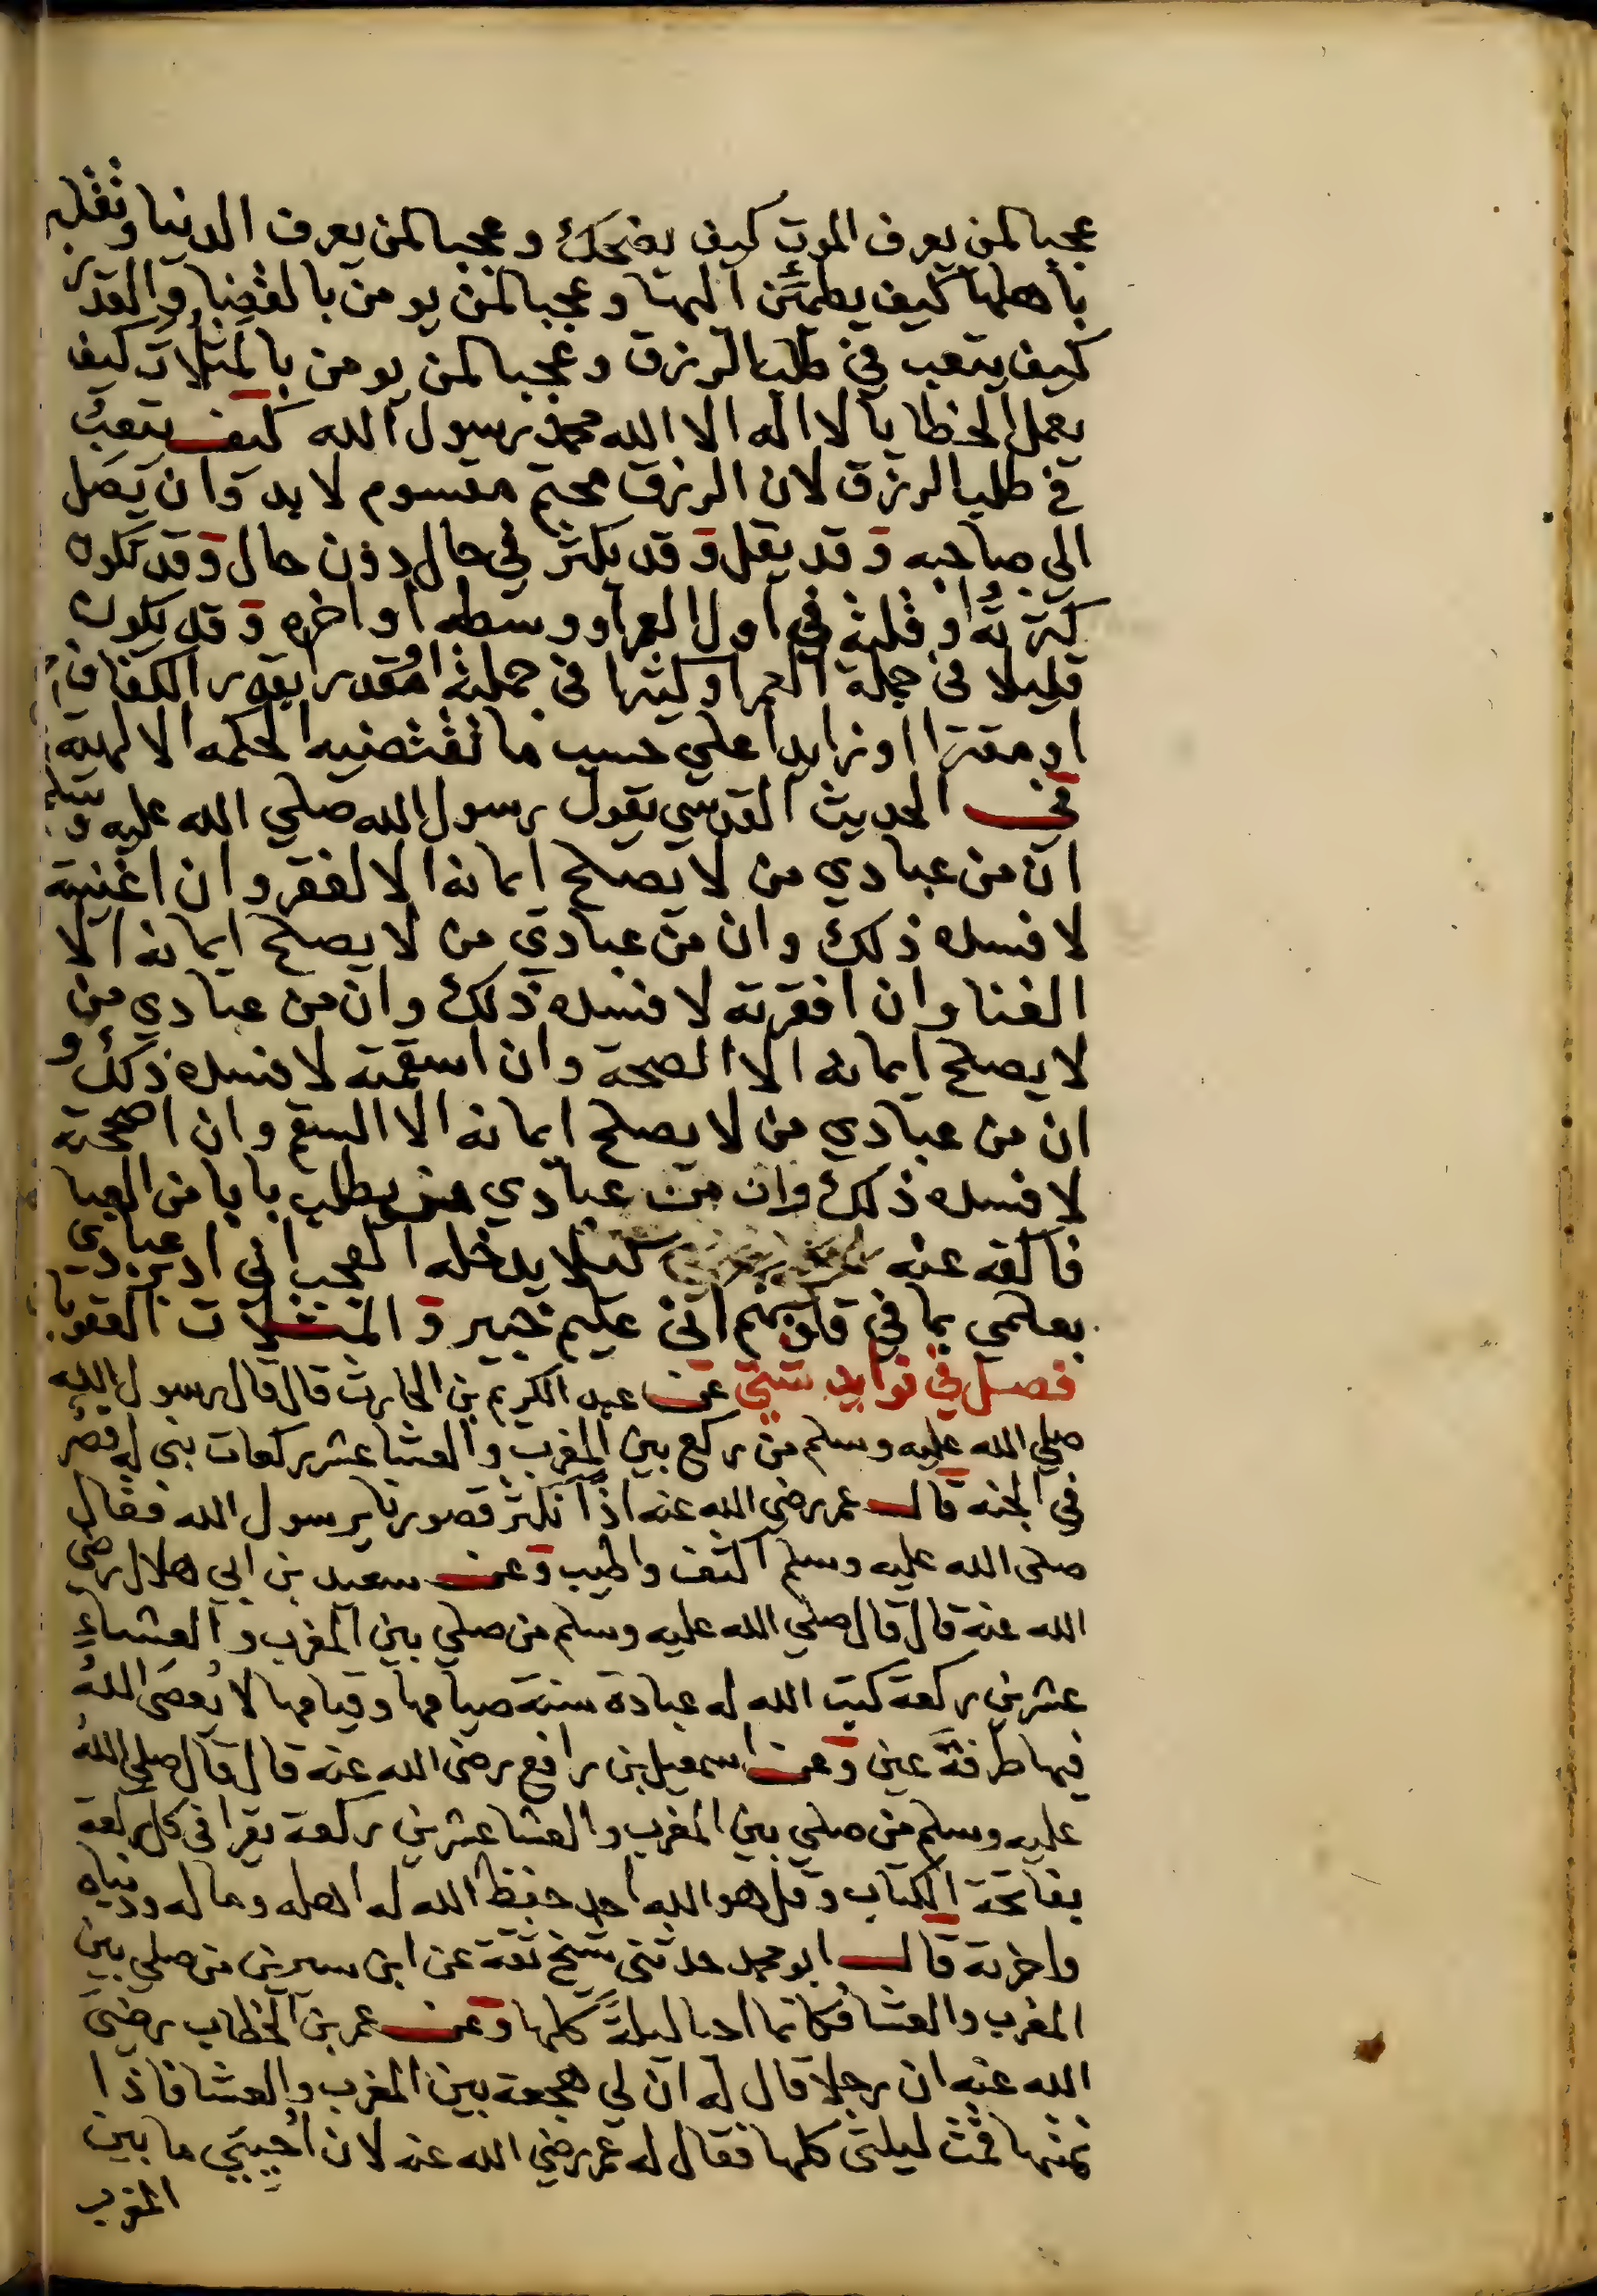 عجبا لمن يعرف الموت كيف يضحك وعجبا لمن يعرف الدنيا وتقلبه
باهلها كيف يطمئن اليها وعجبا لمن يومن بالقضا والقدر
كيف يتعب في طلب الرزق وعجبا لمن يومن بالمثلات كيف
يعمل الخطايا لا اله الا الله محمد رسول الله كيف يتعب
في طلب الرزق لان الرزق محتم مقسوم لا بد وان يصل
الي صاحبه وقد يقل وقد يكثر في حال دون حال وقد تكون
كثرته او قلته في اول العمر او وسطه او اخره وقد يكون
قليلا في جملة العمر او كثيرا في جملته او مقدر بقدر الكفاف
او مقترا او زايدا علي حسب ما تقتضيه الحكمه الالهيه
في الحديث القدسي يقول رسول الله صلي الله عليه وسلم
ان من عبادي من لا يصلح ايمانه الا لفقر وان اغنيته
لافسده ذلك وان من عبادي من لا يصلح ايمانه الا
الغنا وان افقرته لافسده ذلك وان من عبادي من
لا يصلح ايمانه الا الصحة وان اسقمته لافسده ذلك و
ان من عبادي من لا يصلح ايمانه الا السقم وان اصححته
لافسده ذلك وان من عبادي من يطلب بابا من العبا
فاكفه عنه كيلا يدخله العجب اني ادبر عبادي
بعلمي بما في قلوبهم اني عليم خبير والمثلات العقوبا
فصل في فوايد شتي عن عبد الكريم بن الحارث قال قال رسول الله
صلي الله عليه وسلم من ركع بين المغرب والعشا عشر ركعات بني له قصر
في الجنه قال عمر رضي الله عنه اذا نكثر قصورنا يرسول الله فقال
صلى الله عليه وسلم اكثف واطيب وعن سعيد بن ابي هلال رضي
الله عنه قال قال صلي الله عليه وسلم من صلي بين المغرب والعشاء
عشرين ركعة كتب الله له عبادة سنة صيامها وقيامها لا يُعصَى اللهُ
فيها طرفةَ عين وعن اسمعيل بن رافع رضى الله عنه قال قال صلي الله
عليه وسلم من صلي بين المغرب والعشا عشرين ركعة يقرا في كل ركعة
بفاتحة الكتاب وقل هو الله احد حفظ الله له اهله وماله ودنياه
واخرته قال ابو محمد حدثني شيخ ثقة عن ابن سيرين من صلي بين
المغرب والعشا فكانما احيا ليلةً كلها وعن عمر بن الخطاب رضي
الله عنه ان رجلا قال له ان لي هجعة بين المغرب والعشا فاذا
نمتها قمت ليلتي كلها فقال له عمر رضي الله عنه لان احييتي ما بين
المغرب